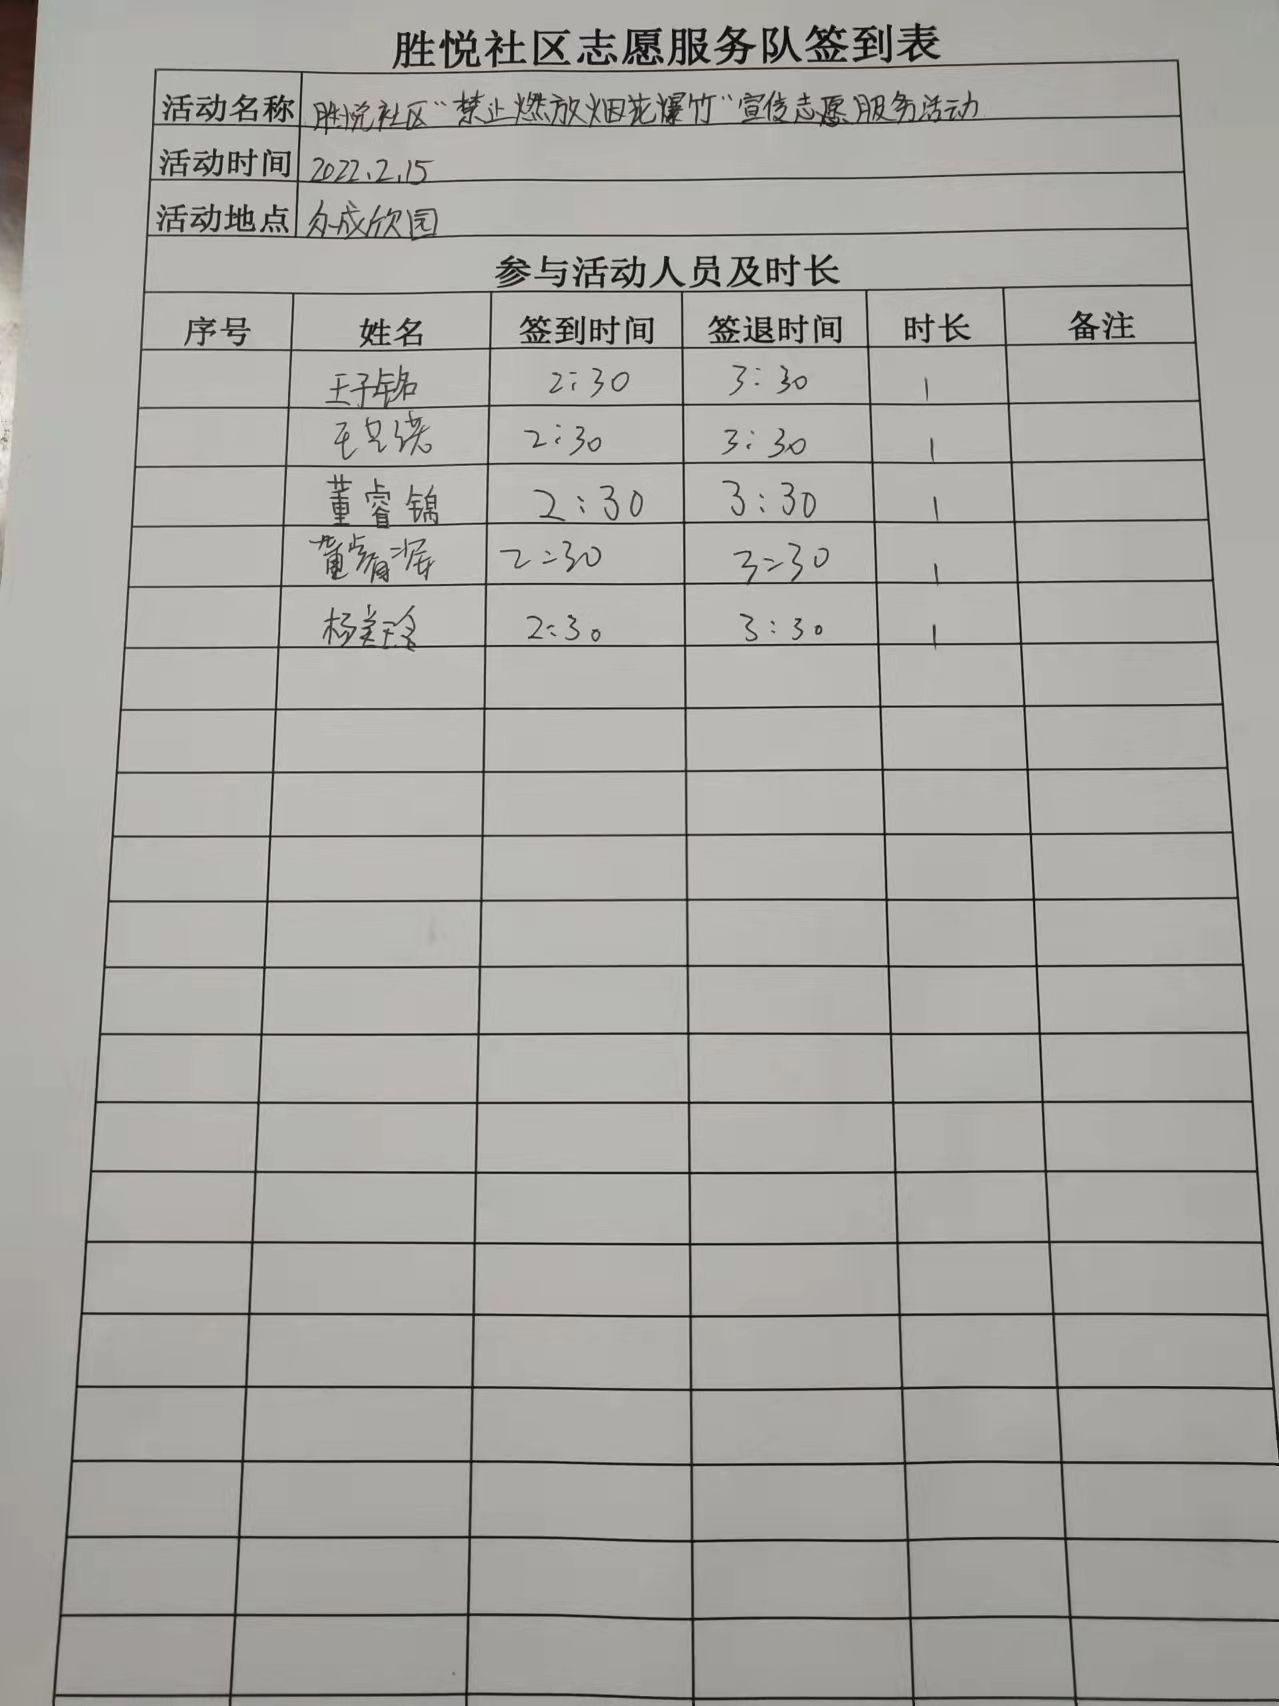 胜悦社区志愿服务队签到表
活动名称 胜悦社区“禁止燃放烟花爆竹”宣传志愿服务活动
活动时间 2022.2.15
活动地点 成欣园
参与活动人员及时长
序号 姓名 签到时间 签退时间 时长 备注
王子铭 2:30 3:30 1
2:30 3:30 1
董睿锦 2:30 3:30 1
董睿 2:30 3:30 1
杨美玲 2:30 3:30 1